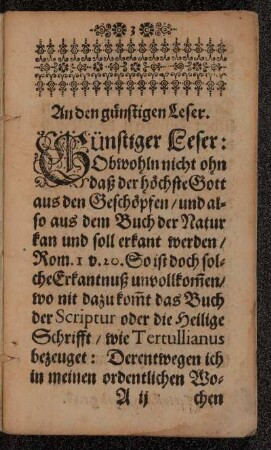 3
An den günstigen Leser.
Günstiger Leser:
Obwohln nicht ohn
daß der höchste Gott
aus den Geschöpfen / und al-
so aus dem Buch der Natur
kan und soll erkant werden /
Rom. 1 v. 20. So ist doch sol-
che Erkantnuß unvollkom̃en /
wo nit dazu kom̃t das Buch
der Scriptur oder die Heilige
Schrifft / wie Tertullianus
bezeuget: Derentwegen ich
in meinen ordentlichen Wo-
A ij chen